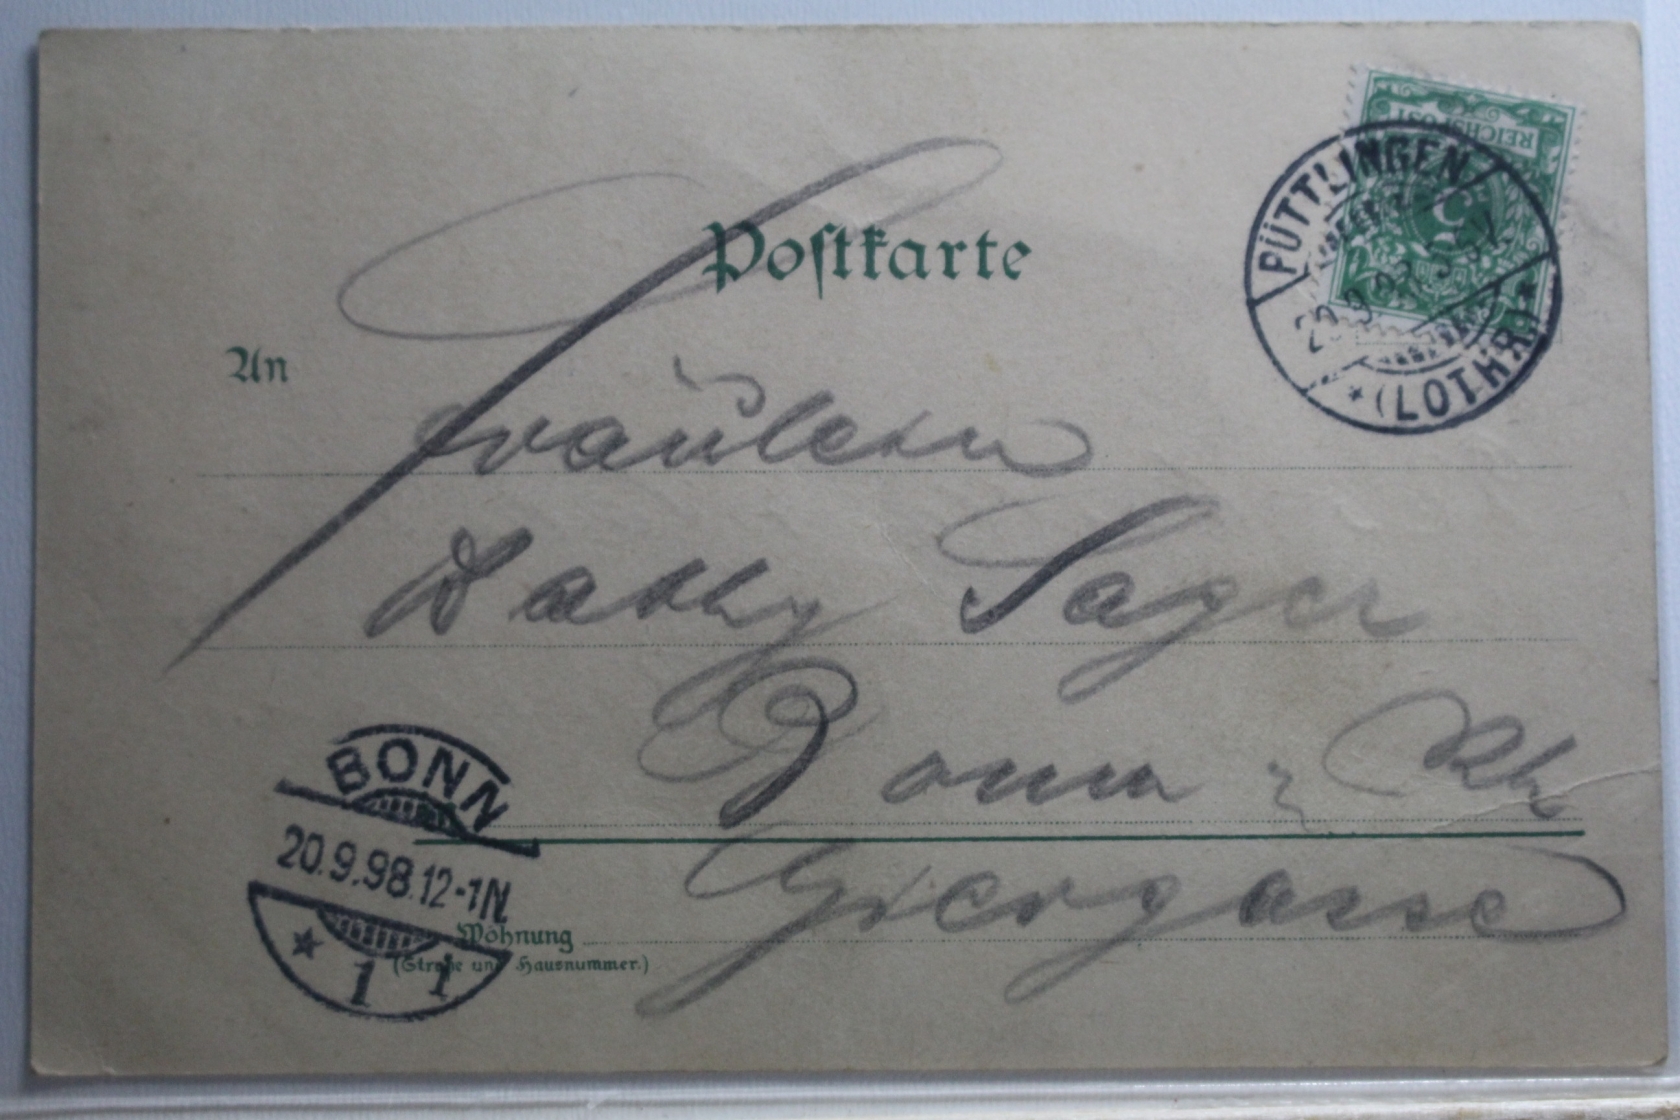 REICHSPOST
5
PÜTTLINGEN
(LOTHR)
Postkarte
An
Fräulein
Kathy Sager
Bonn a Rh
Giergasse
BONN
20.9.98.12-1N.
1 1
Wohnung
(Straße und Hausnummer.)